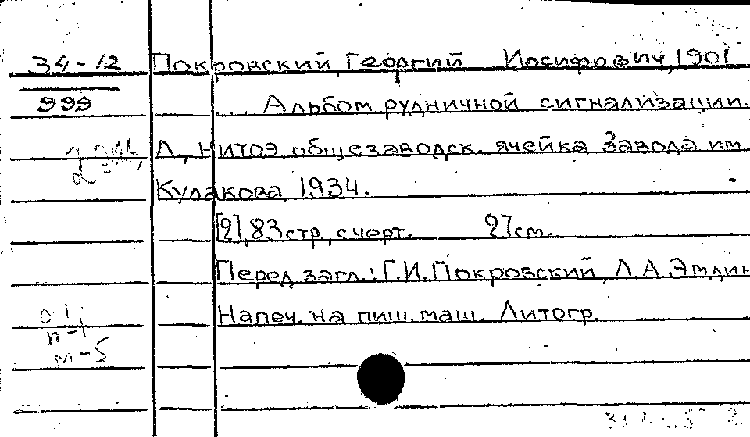 34-12
999
Покровский, Георгий Иосифович, 1901
... Альбом рудничной сигнализации.
Л., НИТОЭ общезаводск. ячейка Завода им.
Кулакова, 1934.
[2], 83 стр., с черт. 27 см.
Перед загл.: Г.И. Покровский, Л.А. Эмдин
Напеч. на пиш. маш. Литогр.
п-1
т-5